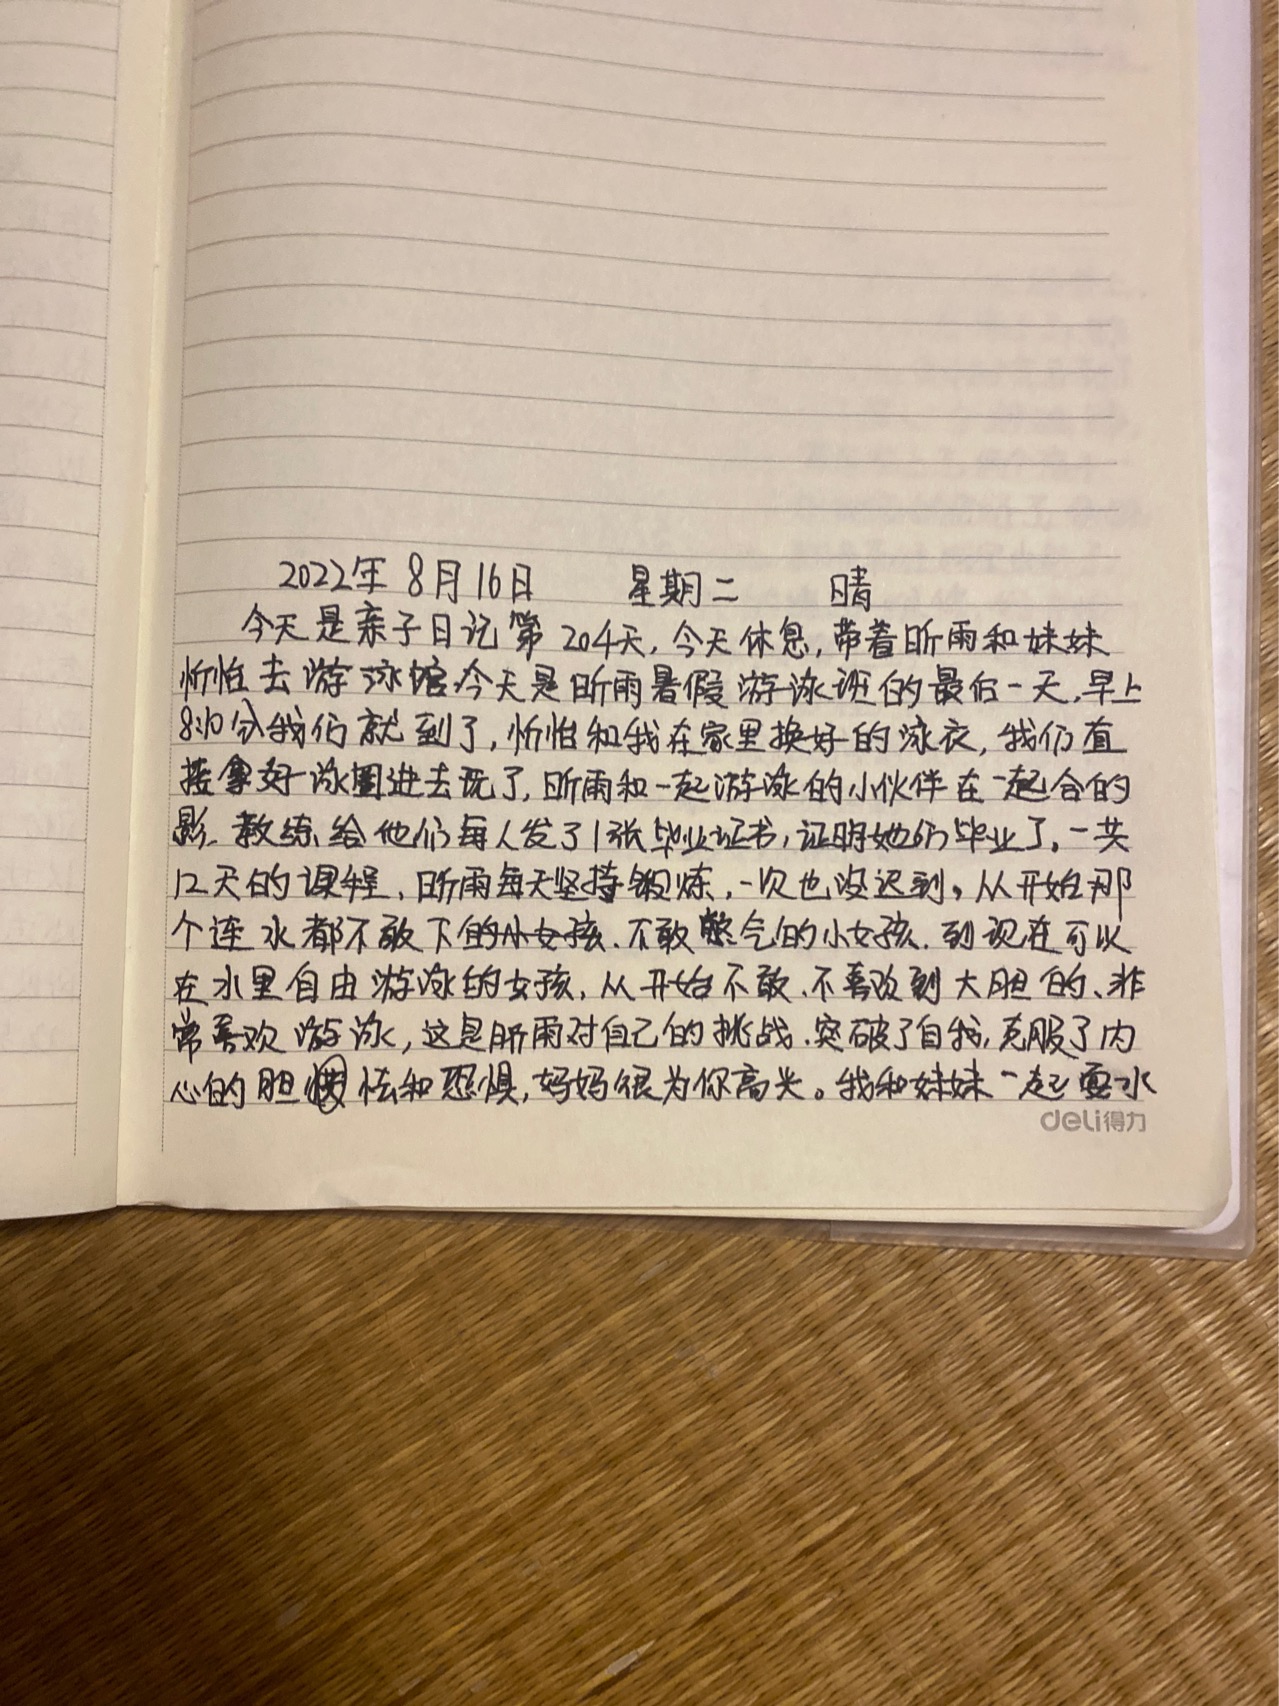 2022年 8月16日 星期二 晴
今天是亲子日记第204天,今天休息,带着昕雨和妹妹
忻怡去游泳馆.今天是昕雨暑假游泳班的最后一天,早上
8:10分我们就到了,忻怡和我在家里换好的泳衣,我们直
接拿好泳圈进去玩了,昕雨和一起游泳的小伙伴在一起合的
影.教练给他们每人发了1张毕业证书,证明她们毕业了。一共
12天的课程,昕雨每天坚持锻炼,一次也没迟到。从开始那
个连水都不敢下的小女孩.不敢憋气的小女孩.到现在可以
在水里自由游泳的女孩,从开始不敢、不喜欢到大胆的、非
常喜欢游泳,这是昕雨对自己的挑战.突破了自我,克服了内
心的胆怯和恐惧,妈妈很为你高兴。我和妹妹一起耍水
deli得力